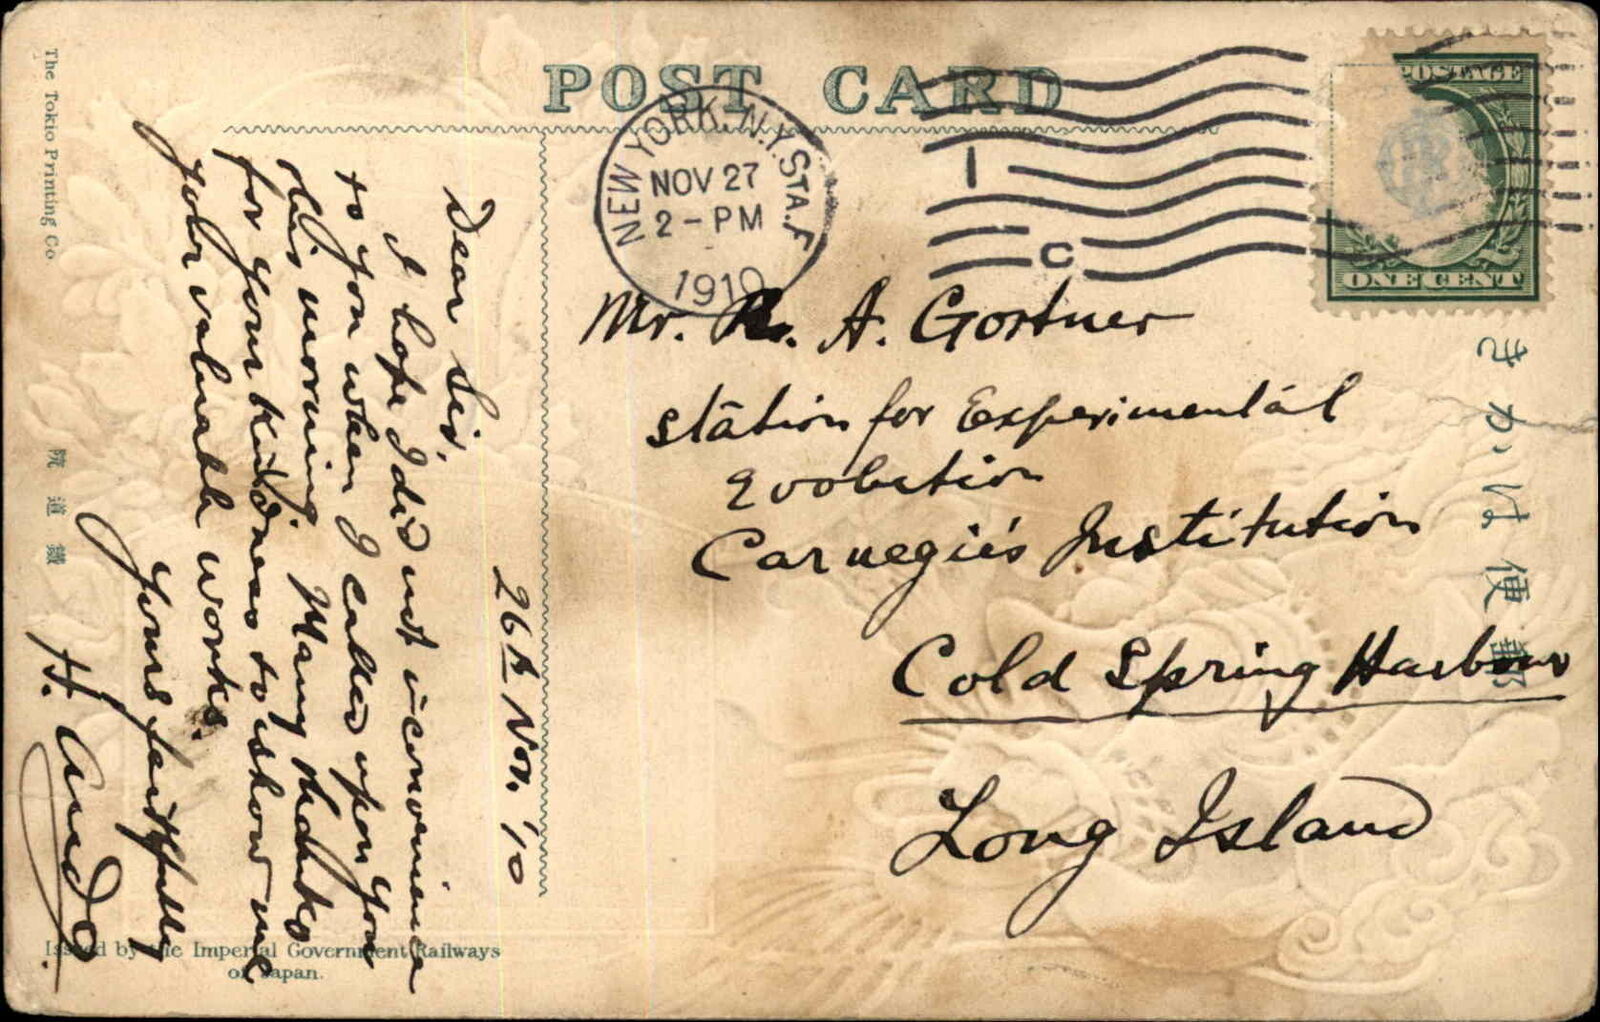 POST CARD
NEW YORK, N.Y. STA. F
NOV 27
2-PM
1910
1
C
POSTAGE
ONE CENT
Mr. R. A. Gortner
Station for Experimental
Evolution
Carnegie's Institution
Cold Spring Harbour
Long Island
26th Nov. '10
Dear Sir,
I hope I did not inconvenience
to you when I called upon you
this morning. Many thanks
for your kindness to show me
your valuable works.
Yours faithfully
H. Ando.
きかは便郵
The Tokio Printing Co.
院道鐵
Issued by the Imperial Government Railways
of Japan.